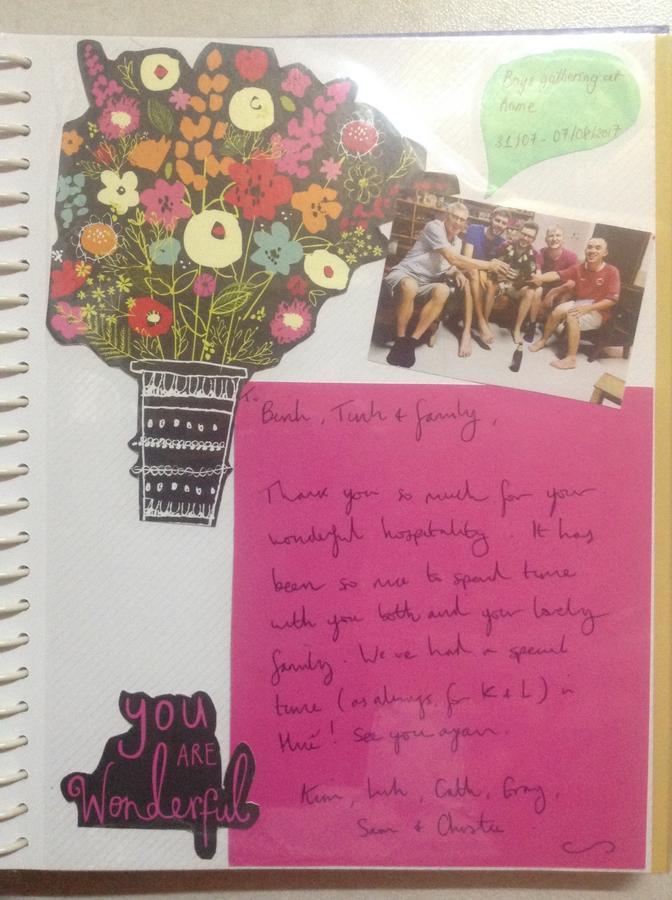 Boys gathering at
home
31/07 - 07/08/2017
To
Binh, Tinh & family,
Thank you so much for your
wonderful hospitality. It has
been so nice to spend time
with you both and your lovely
family. We've had a special
time (as always, for K & L) in
Huế! See you again.
Kim, Cath,
Sam &
you
ARE
Wonderful